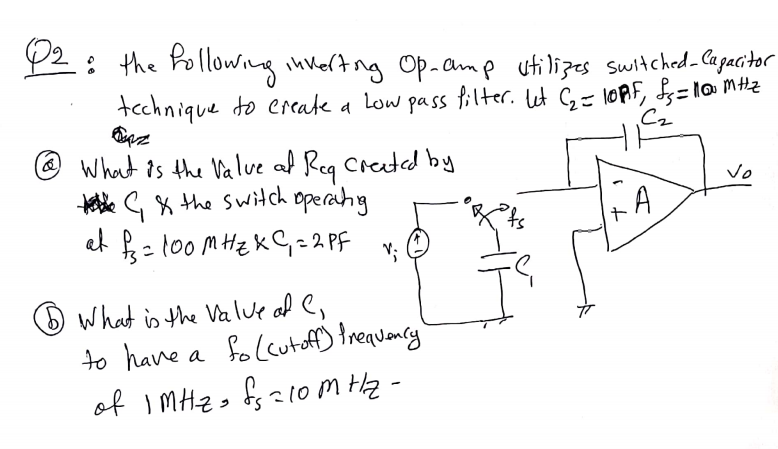 Q2: the following inverting Op-amp utilizes switched-Capacitor
technique to create a Low pass filter. let C₂ = 10PF, fs = 100 MHz
C₂
ⓐ What is the Value of Req created by
C₁ & the switch operating
at fs = 100 MHz & C₁ = 2PF
Vi
fs
C₁
-
+
A
Vo
ⓑ What is the Value of C₁
to have a fo (cutoff) frequency
of 1 MHz, fs = 10 MHz -